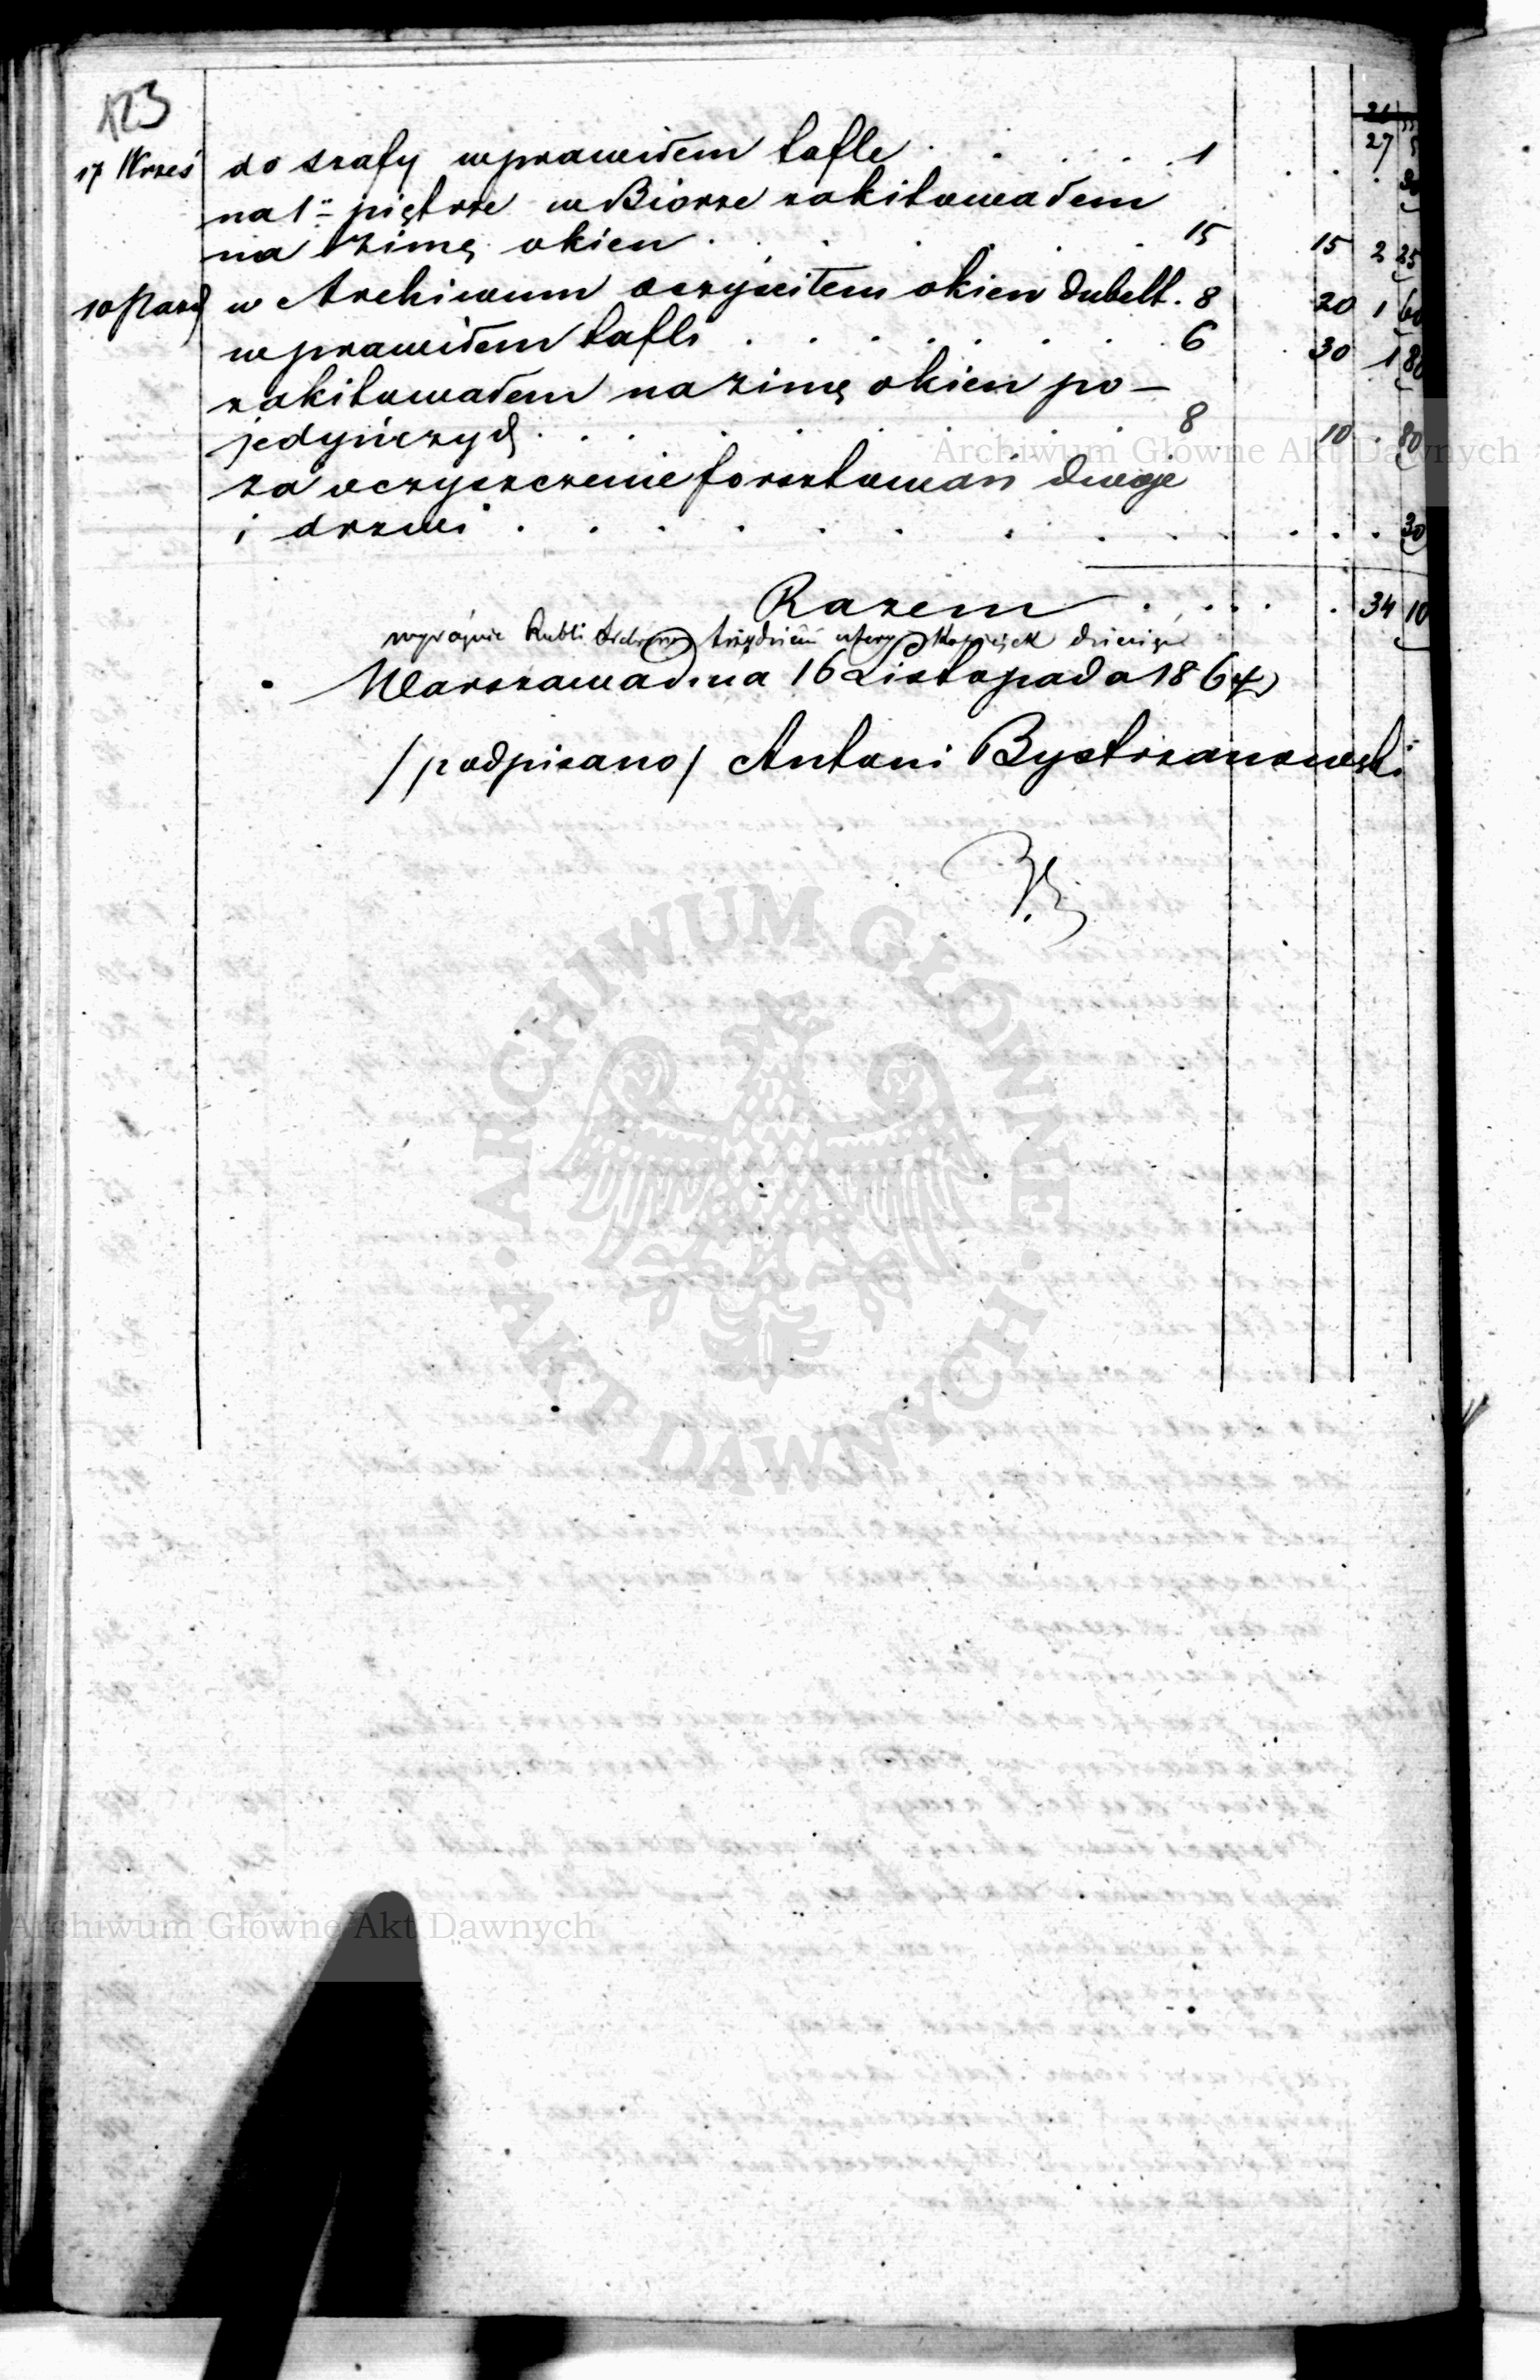 123
21
27
17 Wrześ do szafy wprawiłem taflę . . . . 1 . . . 30
na 1m piętrze w Biórze zakitowałem
na zimę okien . . . . . . 15 15 2 25
10 Paźd w Archiwum oczyścitem okien dubelt. 8 20 1 60
wprawiłem tafli . . . . . . . 6 30 1 80
zakitowałem na zimę okien po-
jedyńczych . . . . . . . . 8 10 . 80
za oczyszczenie forsztowań dwoje
i drzwi . . . . . . . . . . . . . 30
Razem . . . . . 34 10
wyraźnie Rubli Srebrem trzydzieści cztery Kopiejek dziesięć
Warszawa dnia 16 Listopada 1864
/podpisano/ Antoni Bystrzanowski
Archiwum Główne Akt Dawnych
ARCHIWUM GŁÓWNE · AKT DAWNYCH ·
Archiwum Główne Akt Dawnych